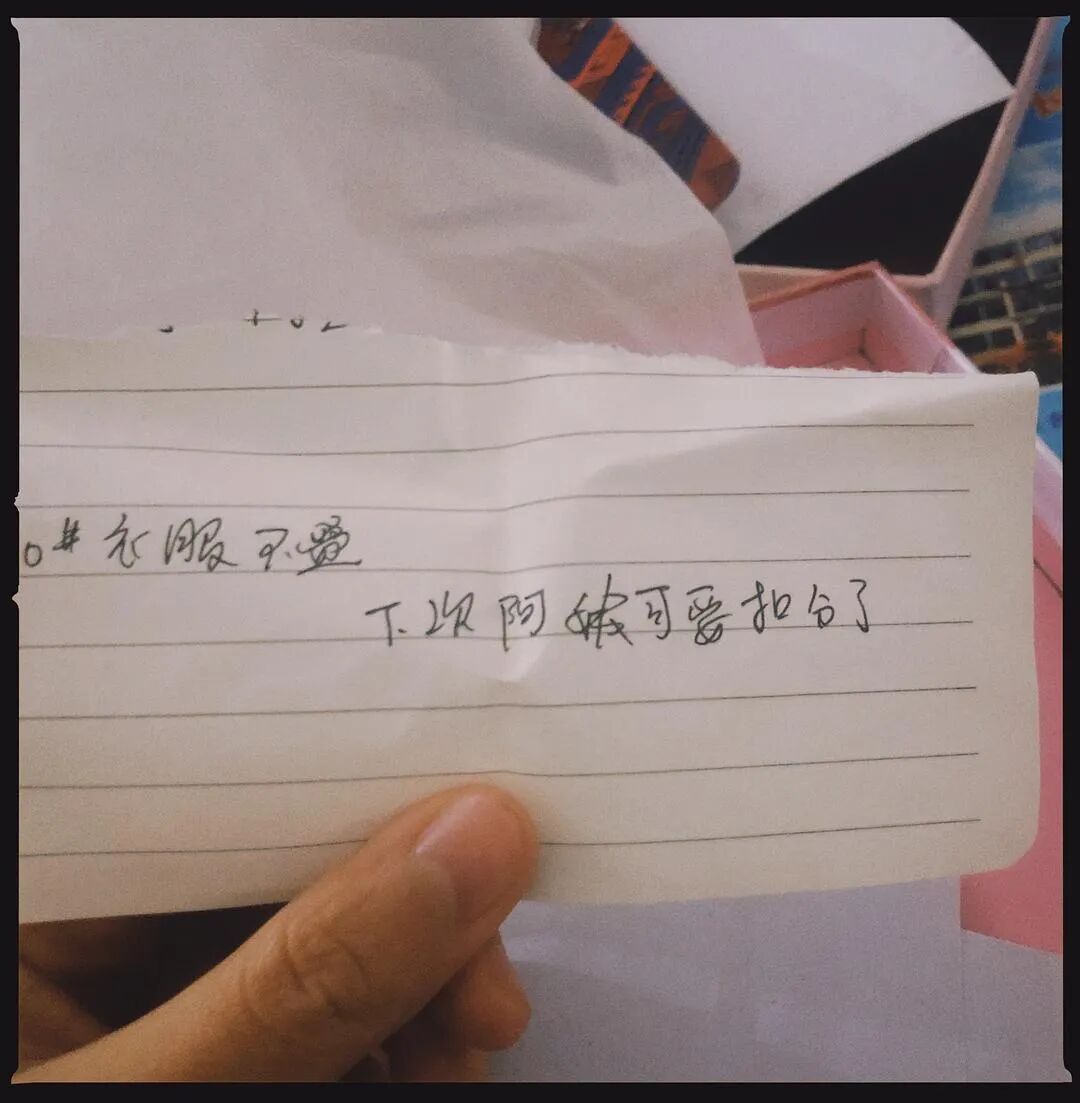 0#衣服不叠
下次阿姨可要扣分了